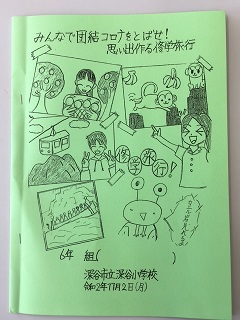 みんなで団結コロナをとばせ!
思い出作る修学旅行
修学旅行!
6年 組( )
深谷市立深谷小学校
令和2年11月2日(月)